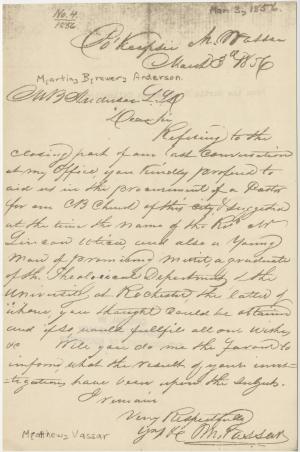 No. 4.
1856.
Mar 3, 1856.
Po'Keepsie M. Vassar
March 3rd 1856
Martin Brewer Anderson.
M B Anderson LLD
Dear Sir
Refering to the
closing part of our last Conversation
at my Office, you kindly profered to
aid us in the procurement of a Pastor
for our CB Church of this city, & suggested
at the time the name of the Revd Mr
of Utica, and also a Young
Man of promising merit, a graduate
of the Theological Department of the
University at Rochester, the latter of
whom, you thought could be obtained
and if so would fullfil all our wishes
&c Will you do me the favour to
inform what the result of your invest-
-igations have been upon the subject.
I remain
Very Respectfully
Yours &c M. Vassar
Matthew Vassar